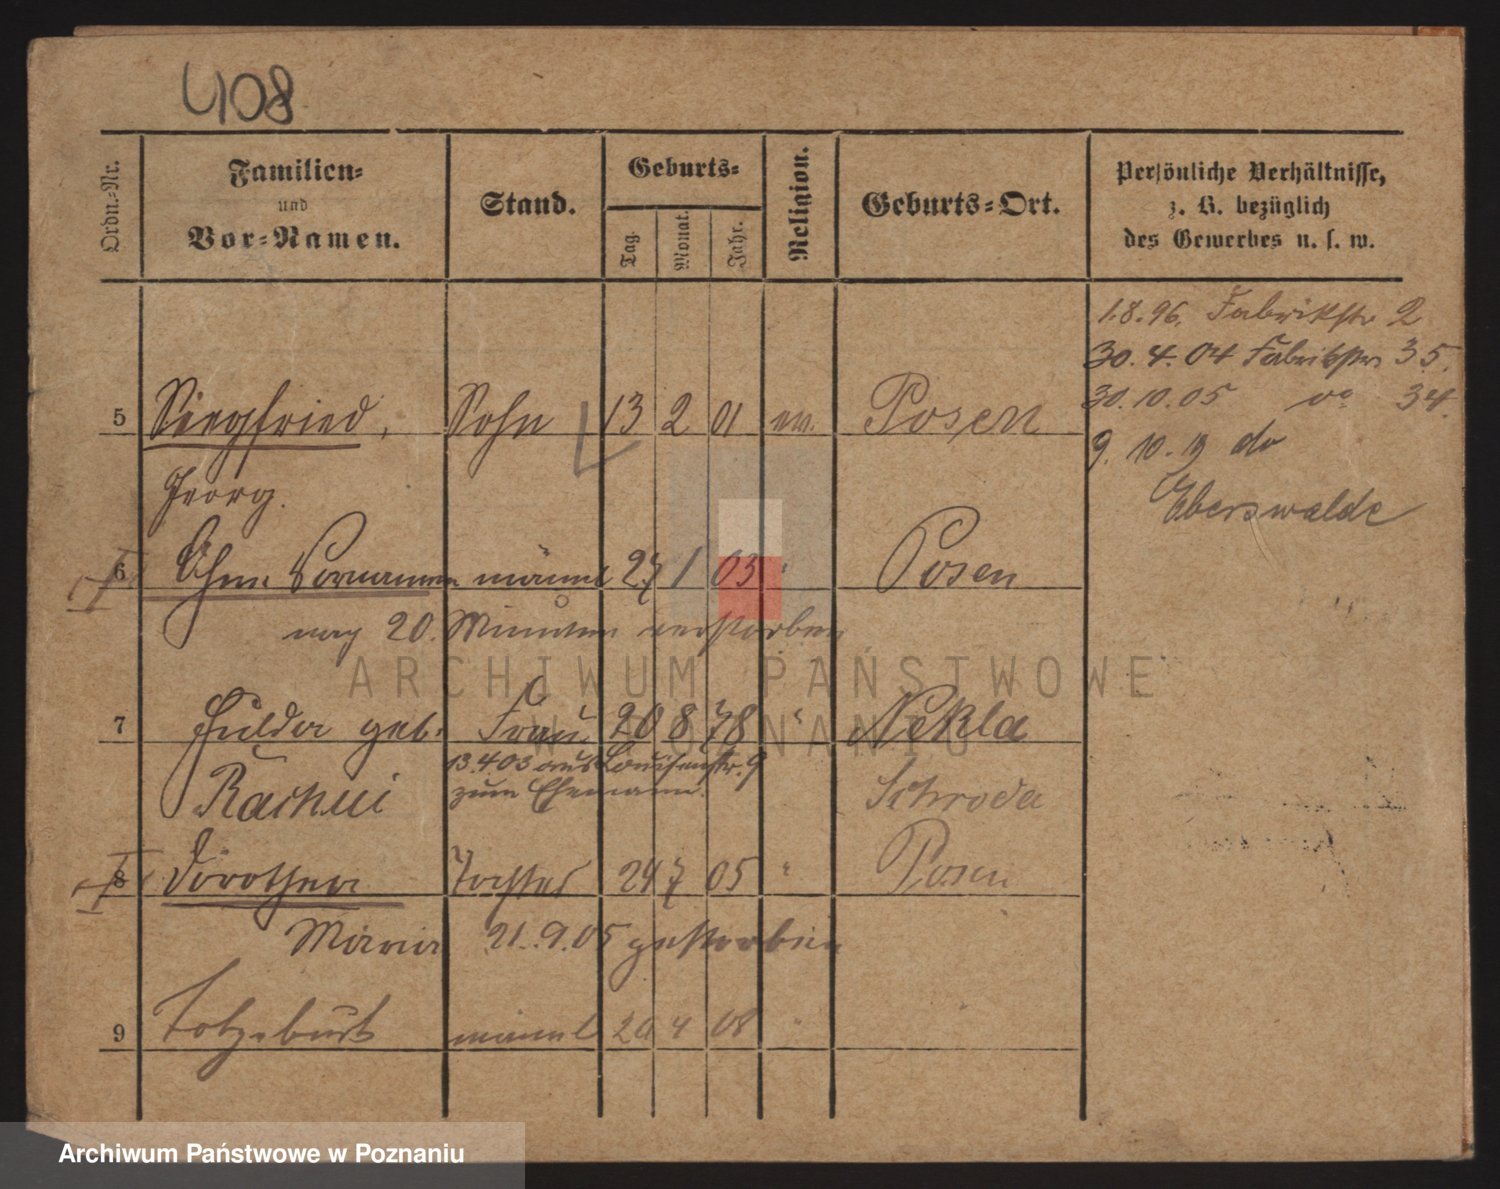 408
Ordn.-Nr.
Familien-
und
Vor-Namen.
Stand.
Geburts-
Tag.
Monat.
Jahr.
Religion.
Geburts-Ort.
Persönliche Verhältnisse,
z. B. bezüglich
des Gewerbes u. s. w.
1.8.96. Fabrikstr 2
30.4.04 Fabrikstr 35.
30.10.05 do 34.
9.10. do
Eberswalde
5 Siegfried, Sohn 13 2 01 ev. Posen
Georg.
6 Ohne Vornamen männl 27 1 03 " Posen
nach 20. Minuten verstorben
7 Hulda geb. Frau 20 8 78 " Nekla
13.4.03 aus Louisenstr. 9
Rachui zum Ehemann. Schroda
8 Dorothea Tochter 24 7 05 " Posen
Maria 21.9.05 gestorben
9 Totgeburt männl 20 4 08 " "
ARCHIWUM PAŃSTWOWE
W POZNANIU
Archiwum Państwowe w Poznaniu